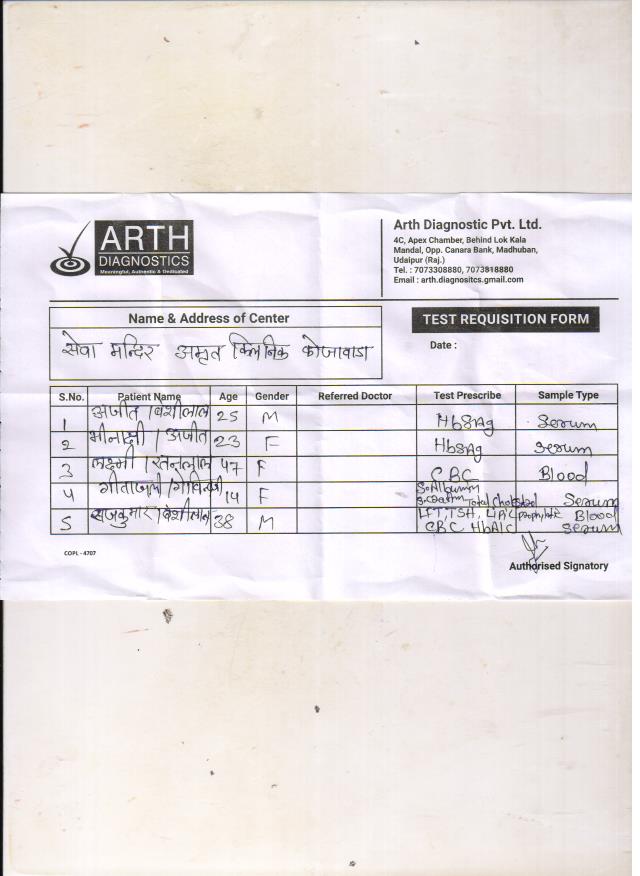 ARTH
DIAGNOSTICS
Meaningful, Authentic & Dedicated
Arth Diagnostic Pvt. Ltd.
4C, Apex Chamber, Behind Lok Kala
Mandal, Opp. Canara Bank, Madhuban,
Udaipur (Raj.)
Tel. : 7073308880, 7073818880
Email : arth.diagnositcs.gmail.com
Name & Address of Center
सेवा मन्दिर अमृत क्लिनिक कोजावाडा
TEST REQUISITION FORM
Date :
S.No. Patient Name Age Gender Referred Doctor Test Prescribe Sample Type
1 अजीत / बंशीलाल 25 M HbSAg Serum
2 मीनाक्षी / अजीत 23 F HbSAg Serum
3 लक्ष्मी / रतनलाल 47 F CBC Blood
4 14 F S. Albumin
Total Serum
5 राजकुमार / बंशीलाल 38 M LFT, TSH, Blood
CBC HbA1C Serum
COPL - 4707
Authorised Signatory